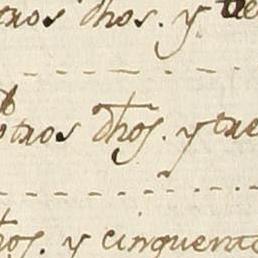 otros dhos. y
otros dhos. y tre
dhos. y cinquenta